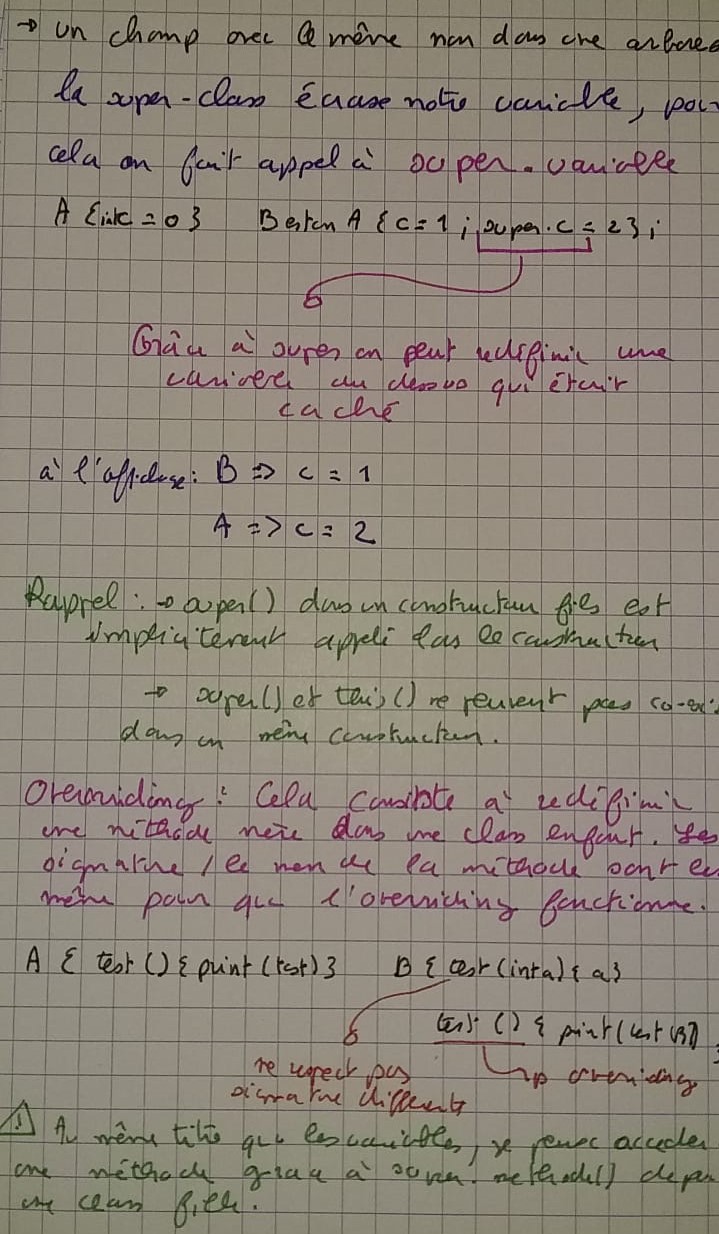 → un champ avec le même nom dans une arbores
la super-class écrase notre variable, pou
cela on fait appel à super.variable
A {int c = 0} B exten A { c = 1 ; super.c = 2 } ;
Grâce à super on peut redéfinir une
variable au dessus qui était
caché
à l'affichage : B => c = 1
A => c = 2
Rappel : → super() dans un constructeur fils est
implicitement appelé dans le constructeur
→ super() et this() ne peuvent pas co-ex
dans un même constructeur.
Overriding : Cela consiste à redéfinir
une méthode mère dans une class enfant. Les
signature / le nom de la méthode sont les
même pour que l'overriding fonctionne.
A { test () { print (test) } B { test (int a) { a }
test () { print (test (B))
ne respect pas overriding
signature différente
⚠ Au même titre que les variables, je peux accéder
une méthode grâce à super.methode() depui
une class fille.